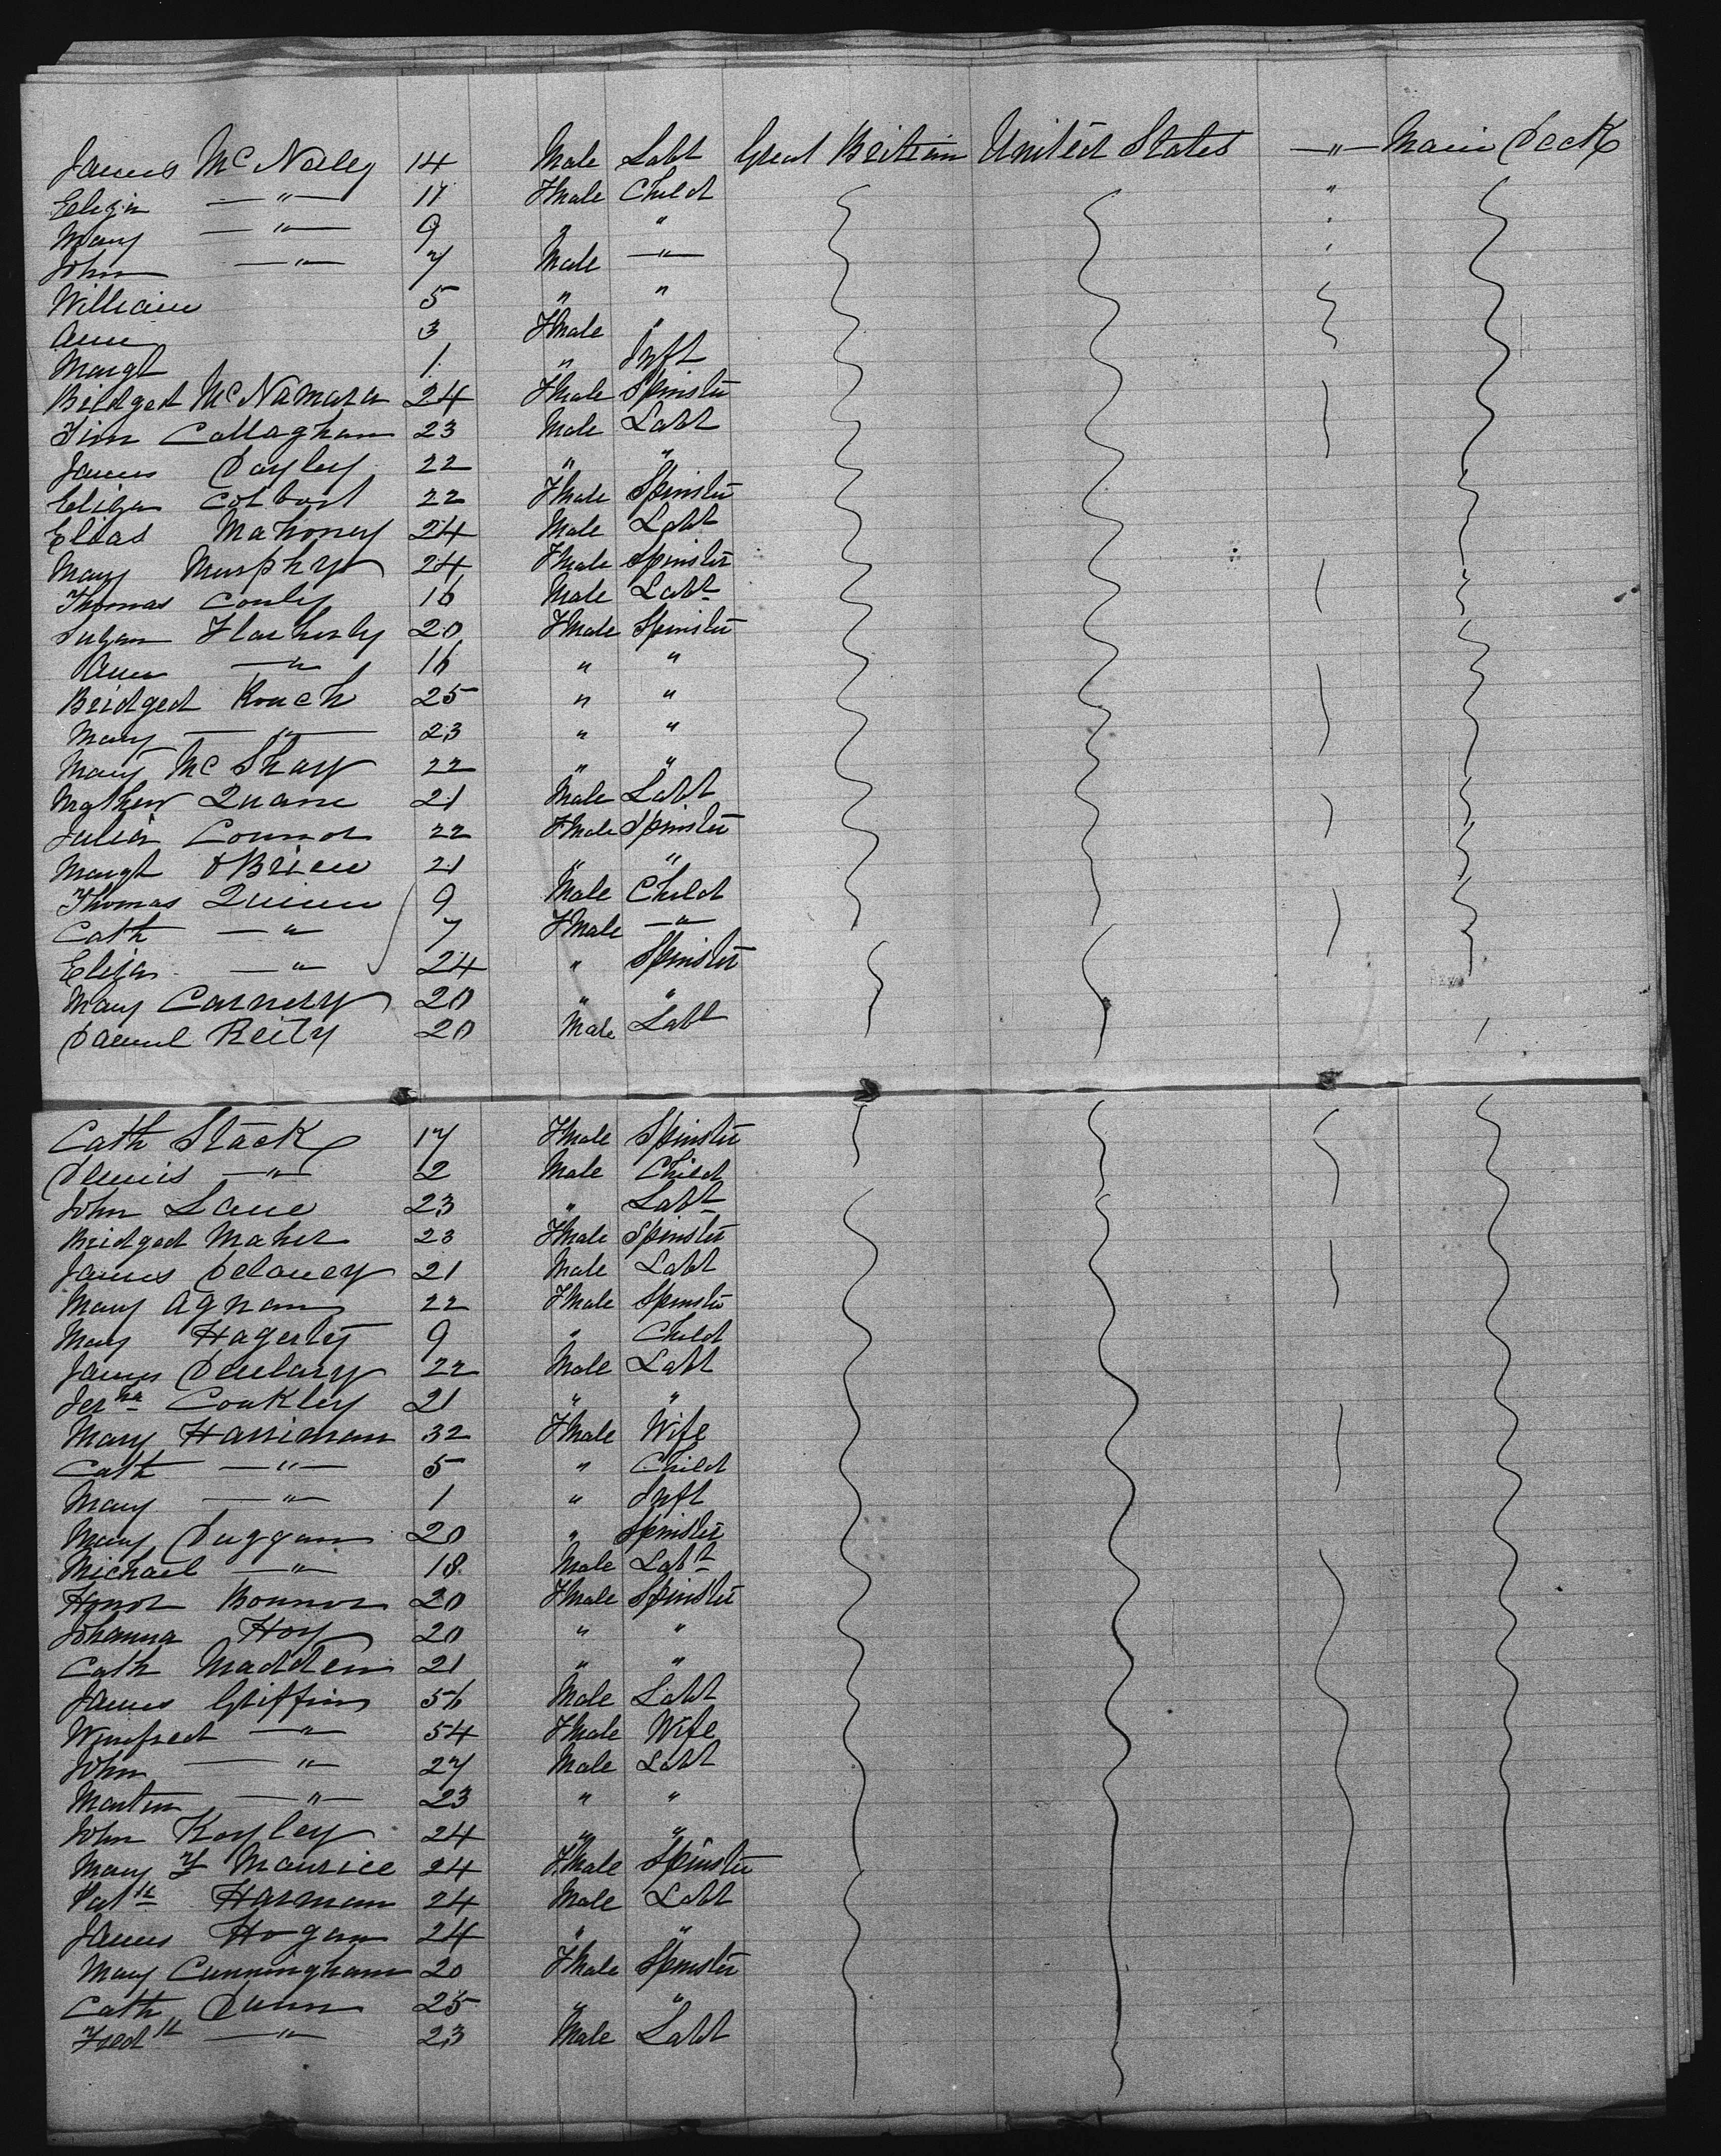 James McNeley 14 Male Labr Great Britian United States —"— Main Deck
Eliza —"— 11 Fmale Child "
Mary —"— 9 " " "
John —"— 7 Male —"— "
William 5 " "
Ann 3 Fmale "
Margt 1 " Inft
Bridged McNamara 24 Fmale Spinster
Tim Callaghan 23 Male Labr
James Dayley 22 " "
Eliza Colbert 22 Fmale Spinster
Elias Mahoney 24 Male Labr
Mary Murphy 24 Fmale Spinster
Thomas Conly 16 Male Labr
Suzan Flaherly 20 Fmale Spinster
Ann —"— 16 " "
Bridged Roach 25 " "
Mary —"— 23 " "
Mary McShay 22 " "
Mathew Quane 21 Male Labr
Julia Connor 22 Fmale Spinster
Margt OBrien 21 " "
Thomas Quinn 9 Male Child
Cath —"— 7 Fmale —"—
Eliza —"— 24 " Spinster
Mary Carnery 20 " "
Daniel Reily 20 Male Labr
Cath Stack 17 Fmale Spinster
Dennis —"— 2 Male Child
John Lane 23 " Labr
Bridged Maher 23 Fmale Spinster
James Delaney 21 Male Labr
Mary Agnan 22 Fmale Spinster
Mary Hagerty 9 " Child
James 22 Male Labr
Jerha Coakley 21 " "
Mary Harriman 32 Fmale Wife
Cath —"— 5 " Child
Mary —"— 1 " Inft
Mary Duggan 20 " Spinster
Michael —"— 18 Male Labr
Honor Bonnor 20 Fmale Spinster
Johanna Hoy 20 " "
Cath Madden 21 " "
James Griffin 56 Male Labr
Winefred —"— 54 Fmale Wife
John —"— 27 Male Labr
Martin —"— 23 " "
John Kayley 24 " "
Mary F Maurice 24 Fmale Spinster
Patk Harman 24 Male Labr
James Hogan 24 " "
Mary Cunningham 20 Fmale Spinster
Cath Dunn 25 " "
Fredk —"— 23 Male Labr